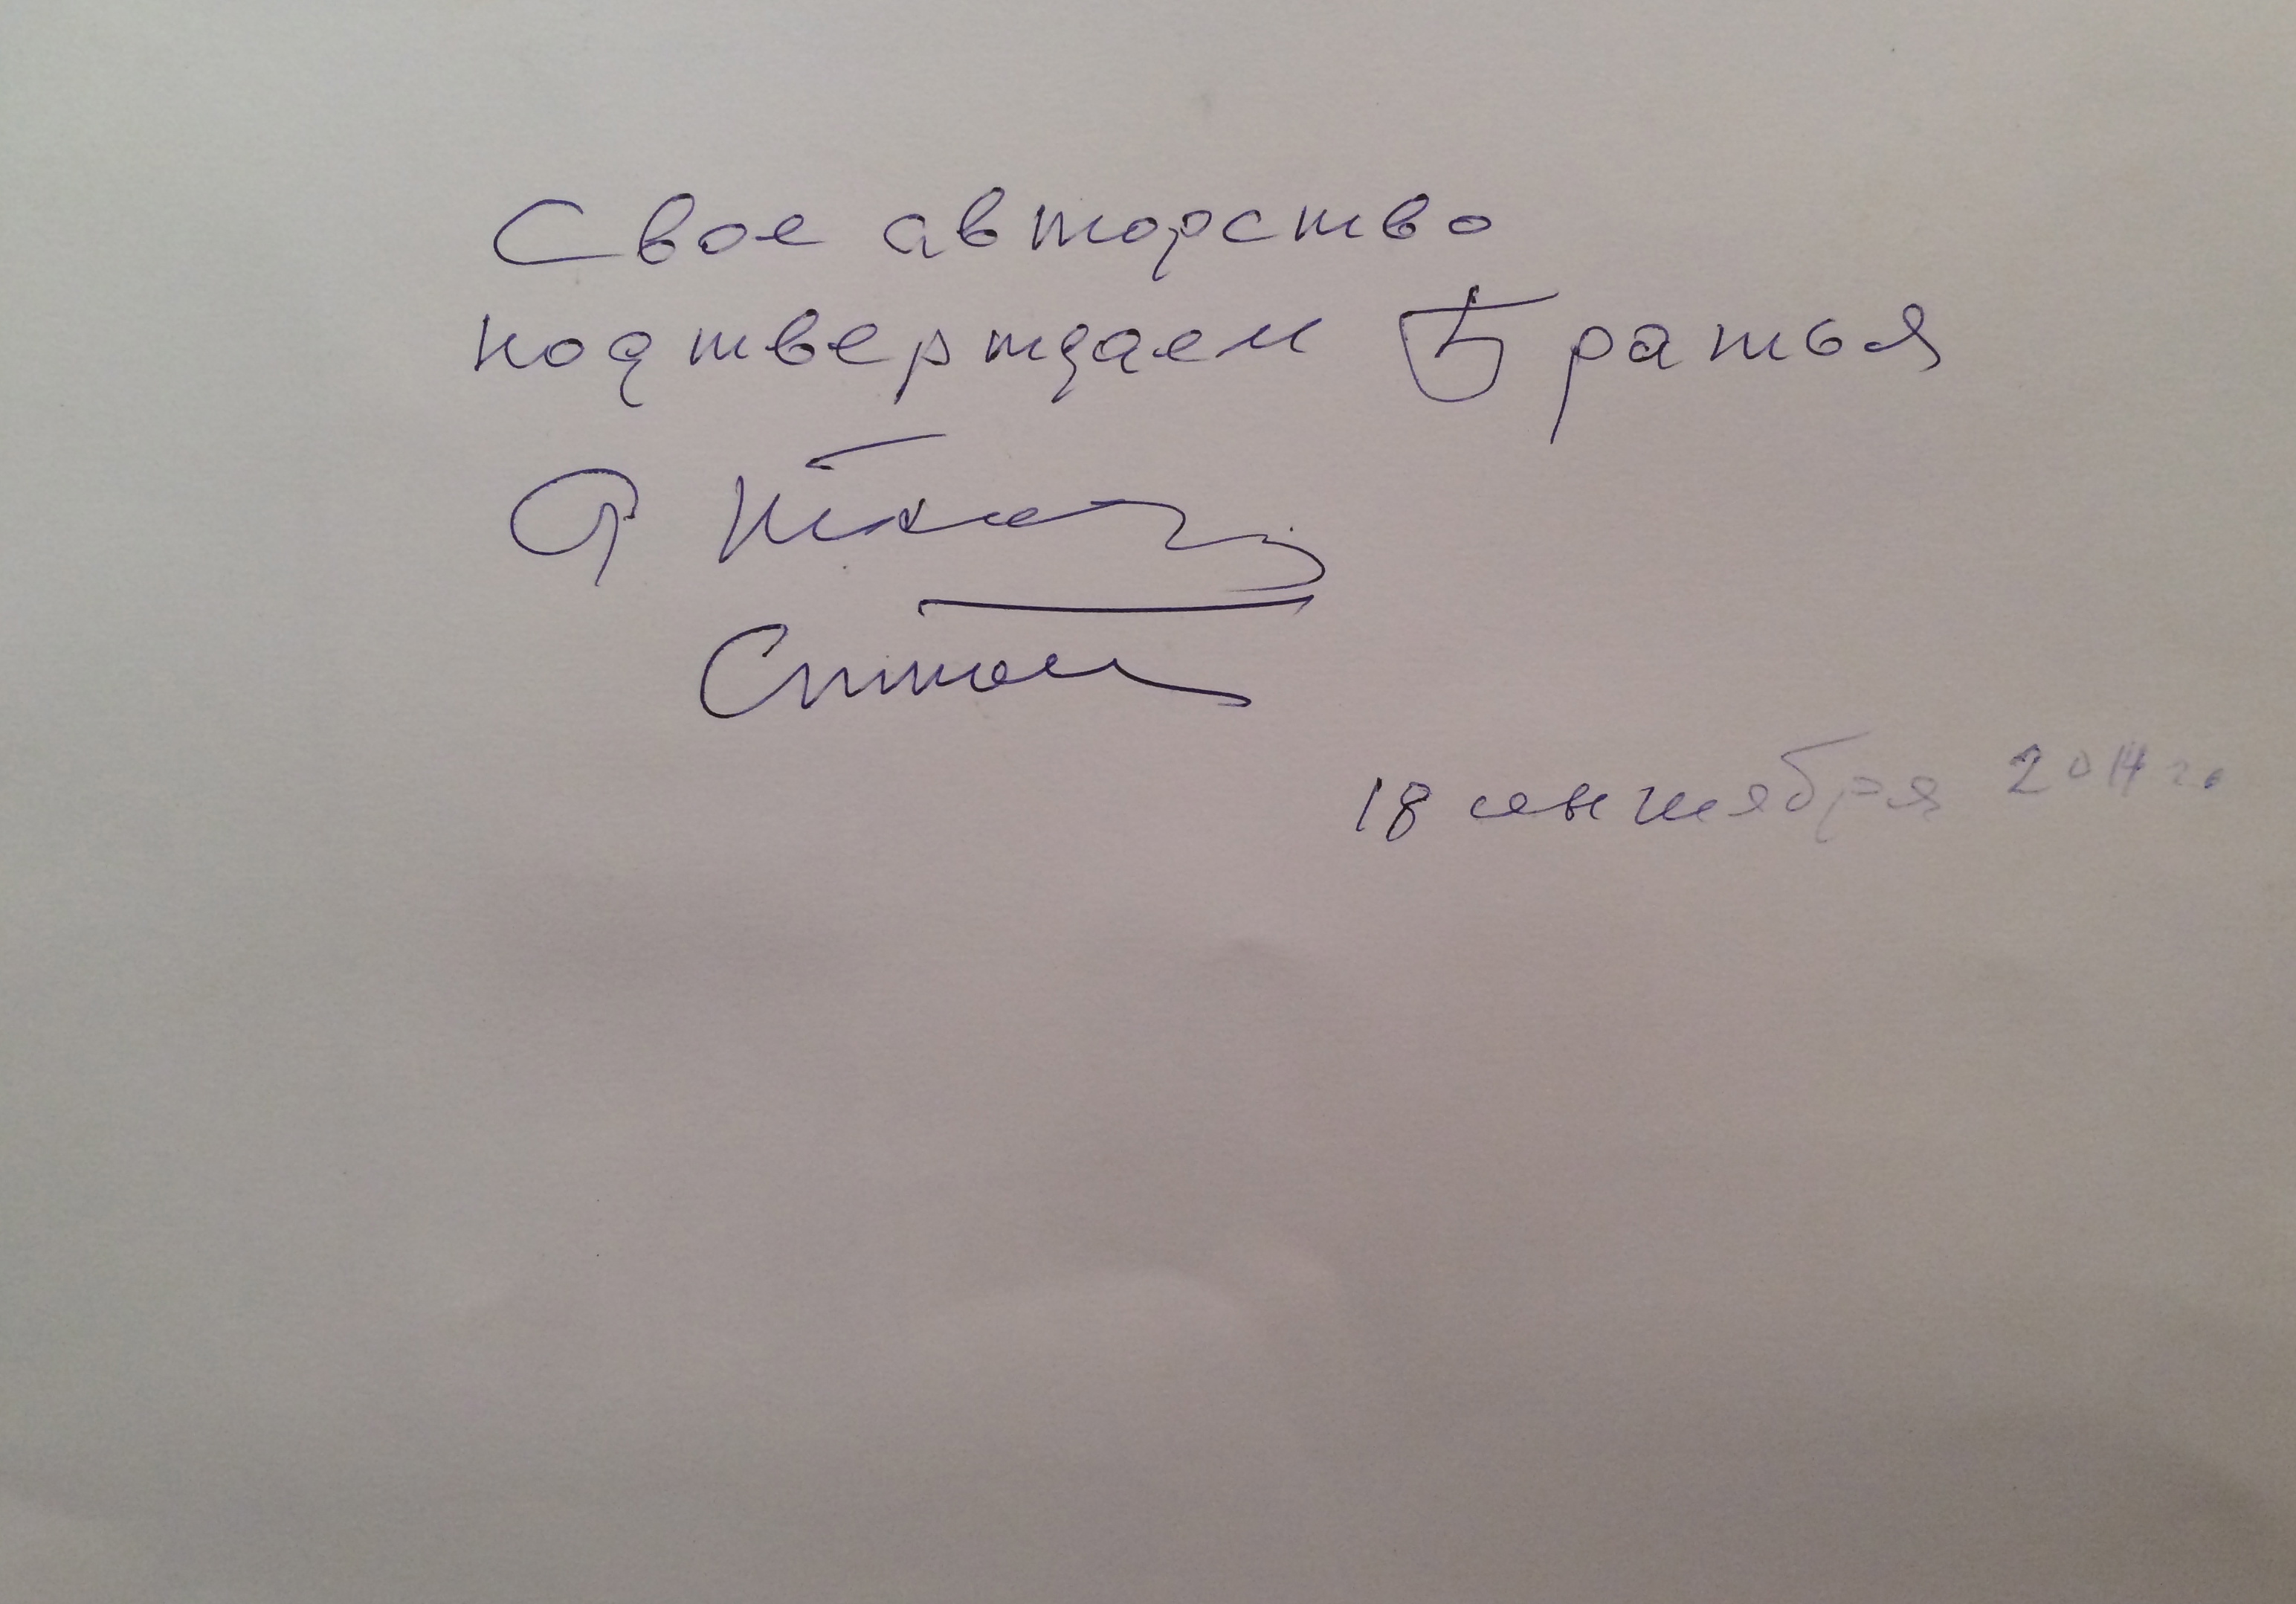 Свое авторство
подтверждаем Братья
18 сентября 2014 г.